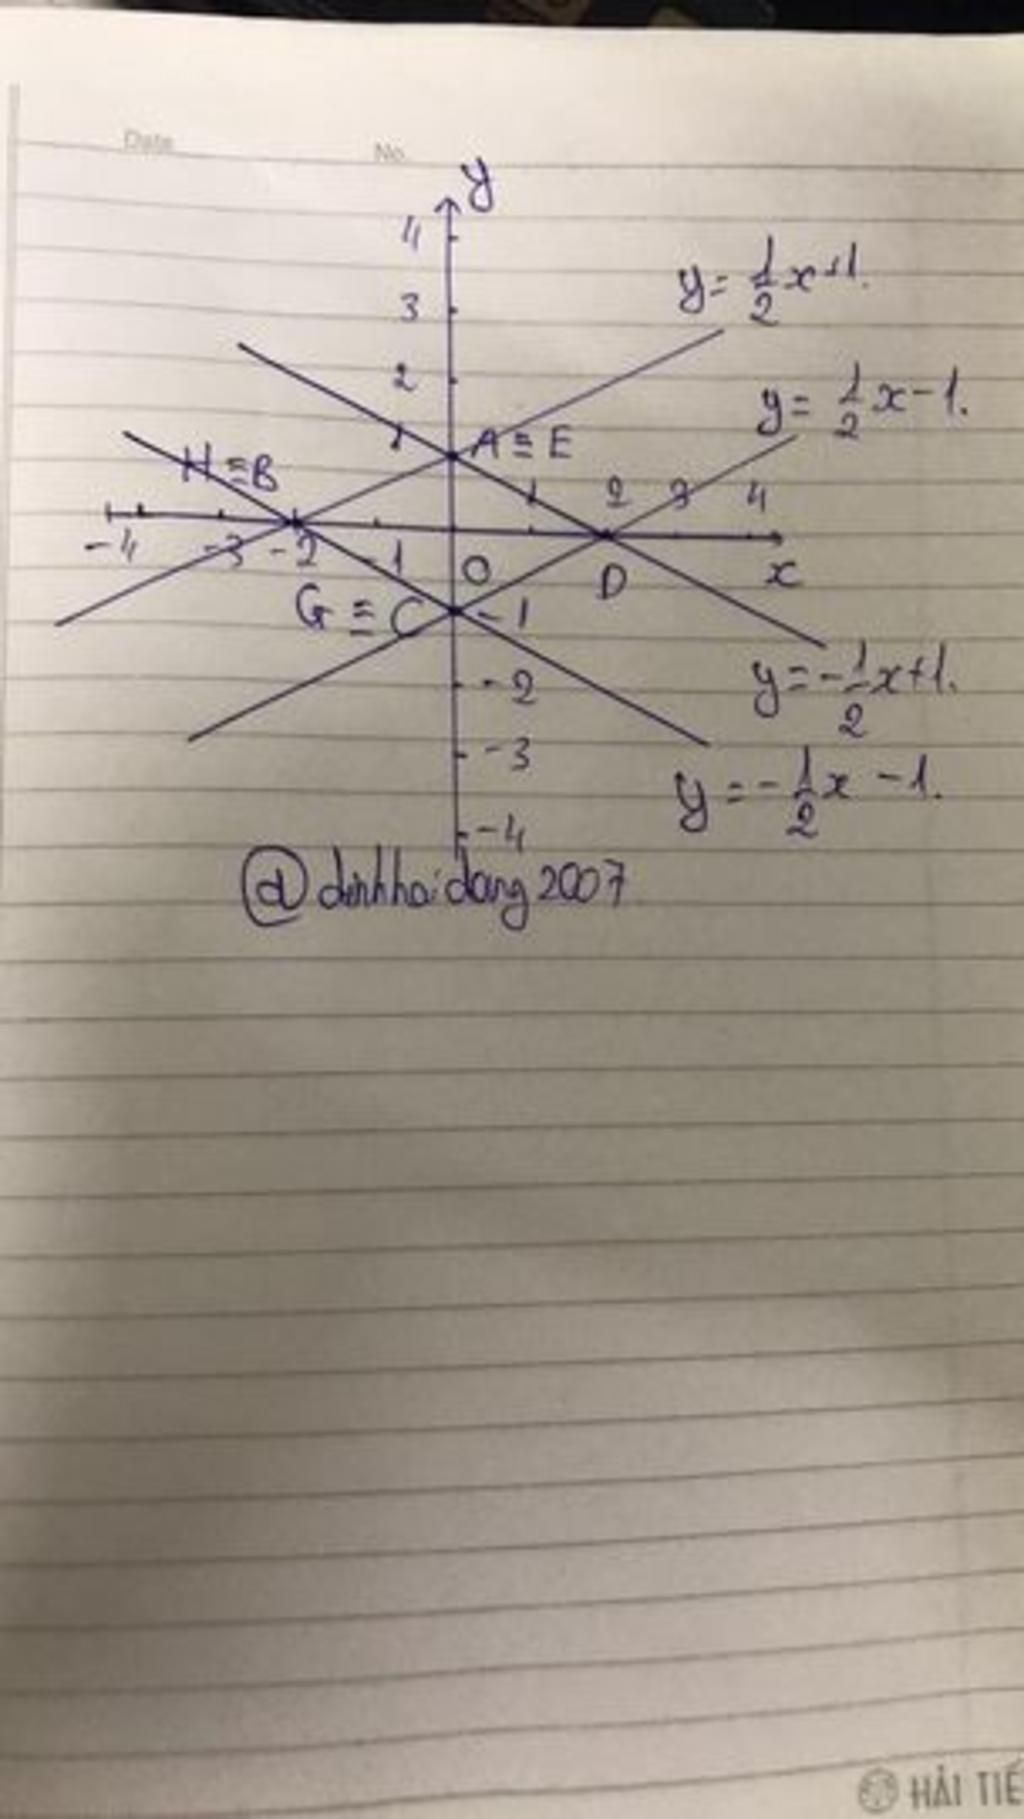 Date
No.
y
4
y = 1/2 x + 1.
3
2
y = 1/2 x - 1.
1
A ≡ E
H ≡ B
1 2 3 4
-4 -3 -2 -1 O D x
G ≡ C -1
-2
y = -1/2 x + 1.
-3
y = -1/2 x - 1.
-4
@dinhhaidang2007
HẢI TIẾ